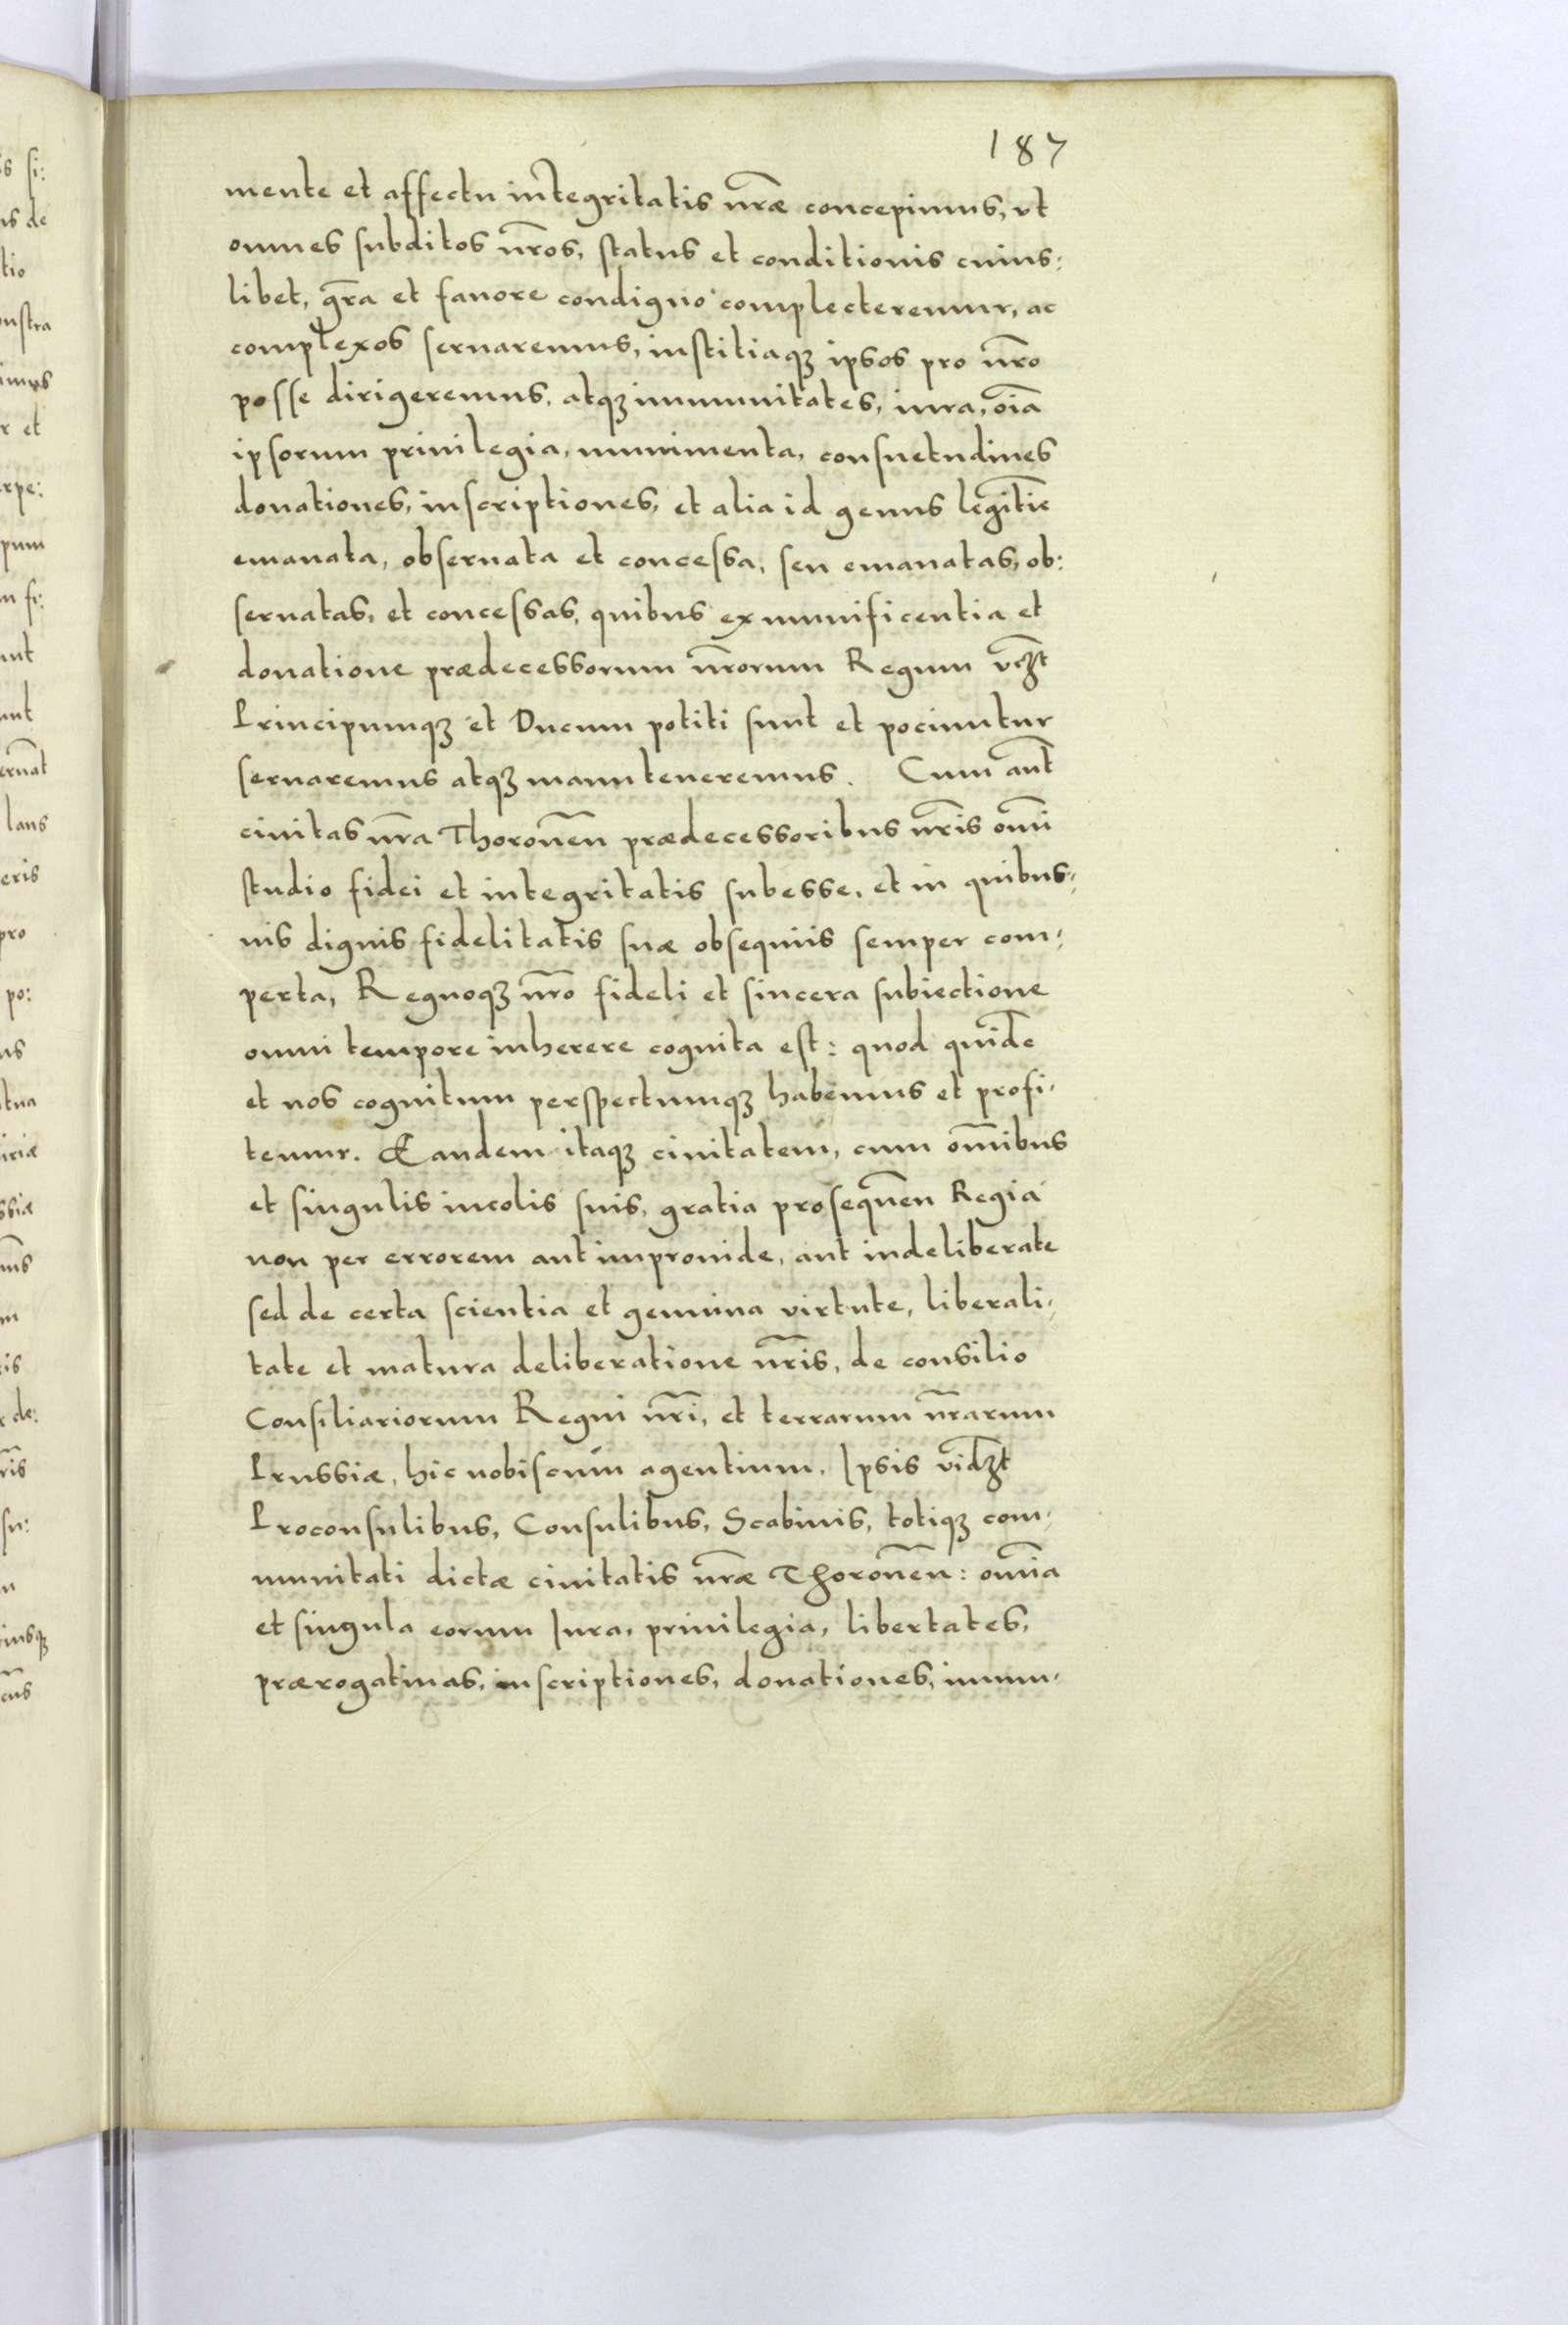 187
mente et affectu integritatis nr̃æ concepimus, vt
omnes subditos nr̃os, status et conditionis cuius:
libet, gr̃a et fauore condigno complecteremur, ac
complexos seruaremus, iustitiaqꝫ ipsos pro nr̃o
posse dirigeremus, atqꝫ immunitates, iura, oĩa
ipsorum priuilegia, munimenta, consuetudines
donationes, inscriptiones, et alia id genus legitĩe
emanata, obseruata et concessa, seu emanatas, ob:
seruatas, et concessas, quibus ex munificentia et
donatione prædecessorum nr̃orum Regum vcꝫ̃t
Principumqꝫ et Ducum potiti sunt et pociuntur
seruaremus atqꝫ manuteneremus. Cum aut̃
ciuitas nr̃a Thoronen̄ prædecessoribus nr̃is om̃i
studio fidei et integritatis subesse, et in quibus:
uis dignis fidelitatis suæ obsequiis semper com:
perta, Regnoqꝫ nr̃o fideli et sincera subiectione
omni tempore inherere cognita est: quod quidẽ
et nos cognitum perspectumqꝫ habemus et profi:
temur. Eandem itaqꝫ ciuitatem, cum om̃ibus
et singulis incolis suis, gratia prosequen̄ Regia
non per errorem aut improuide, aut indeliberate
sed de certa scientia et genuina virtute, liberali:
tate et matura deliberatione nr̃is, de consilio
Consiliariorum Regni nr̃i, et terrarum nr̃arum
Prussiæ, hic nobiscum agentium, Ipsis vidꝫ̃t
Proconsulibus, Consulibus, Scabinis, totiqꝫ com:
munitati dictæ ciuitatis nr̃æ Thoronen̄: om̃ia
et singula eorum Iura, priuilegia, libertates,
prærogatiuas, inscriptiones, donationes, immu: